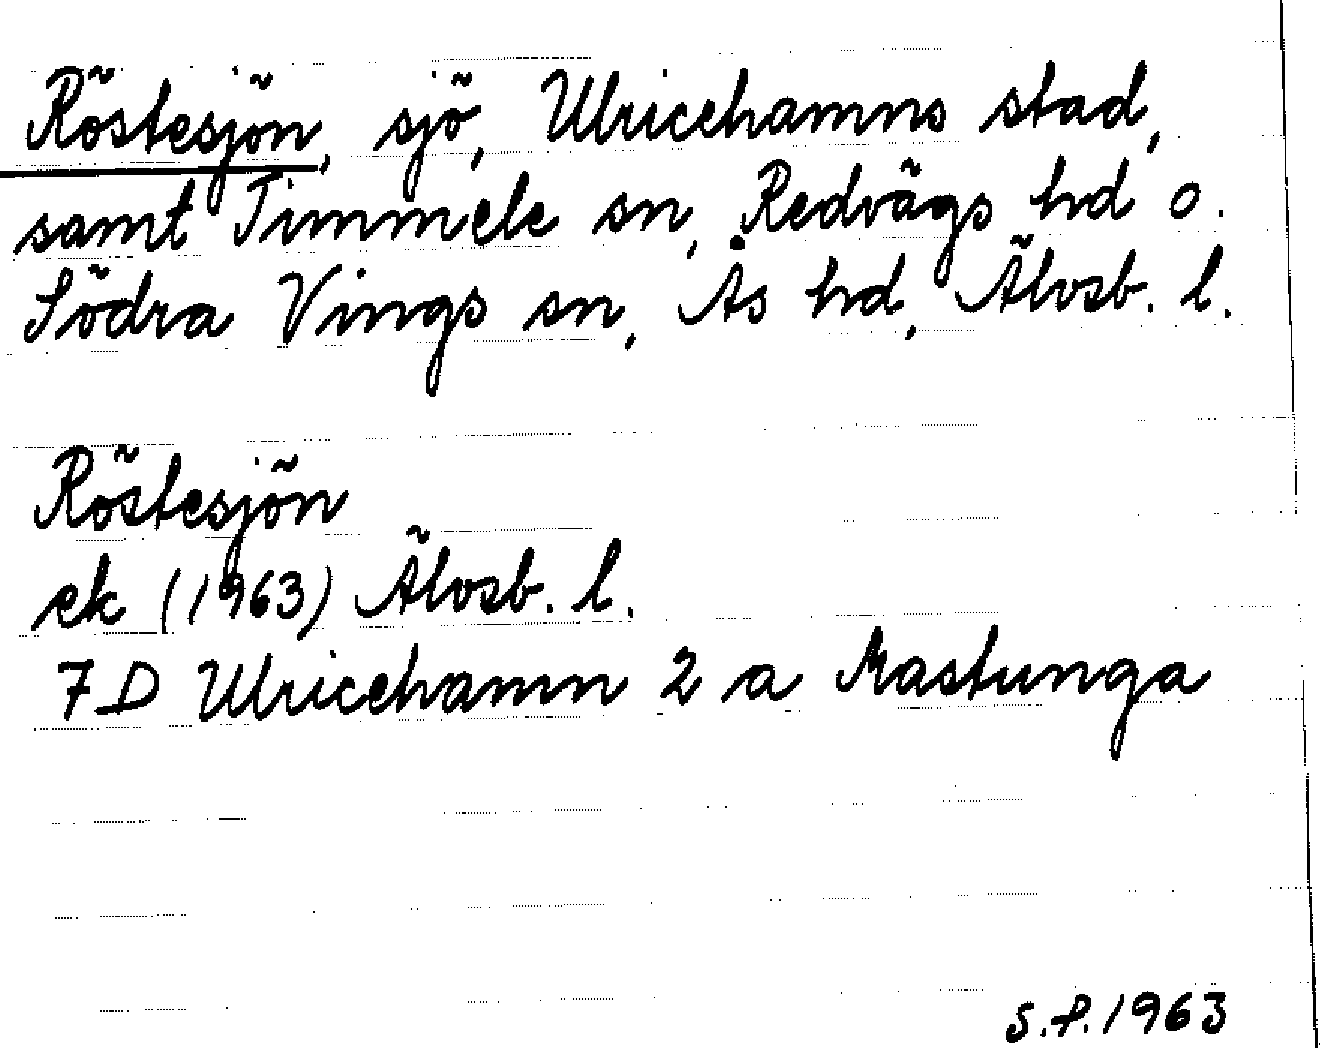 Röstesjön, sjö, Ulricehamns stad,
samt Timmele sn, Redvägs hd o.
Södra Vings sn, Ås hd, Älvsb. l.
Röstesjön
ek (1963) Älvsb. l.
7D Ulricehamn 2 a Rastunga
S.P. 1963